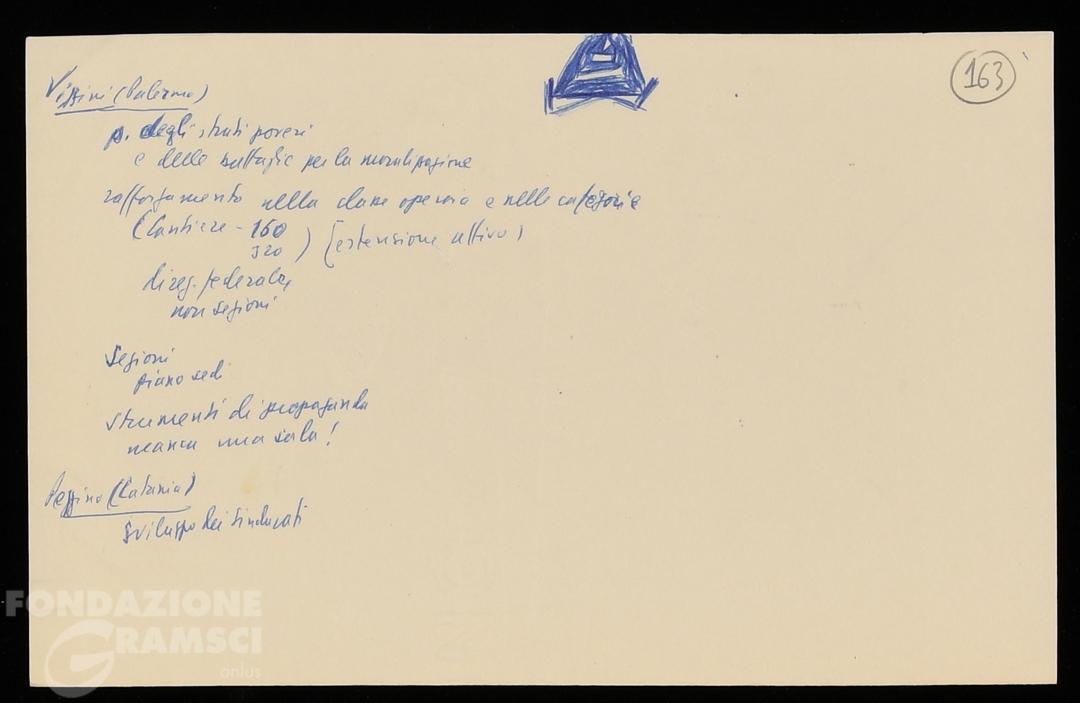 163
Vizzini (Palermo)
p. degli strati poveri
e delle battaglie per la moralizzazione
rafforzamento nella classe operaia e nelle categorie
(Cantiere - 160
320) (estensione attivo)
direz. federale,
non sezioni
Sezioni
piano sedi
strumenti di propaganda
manca una sala!
(Catania)
sviluppo dei sindacati
FONDAZIONE
GRAMSCI
onlus